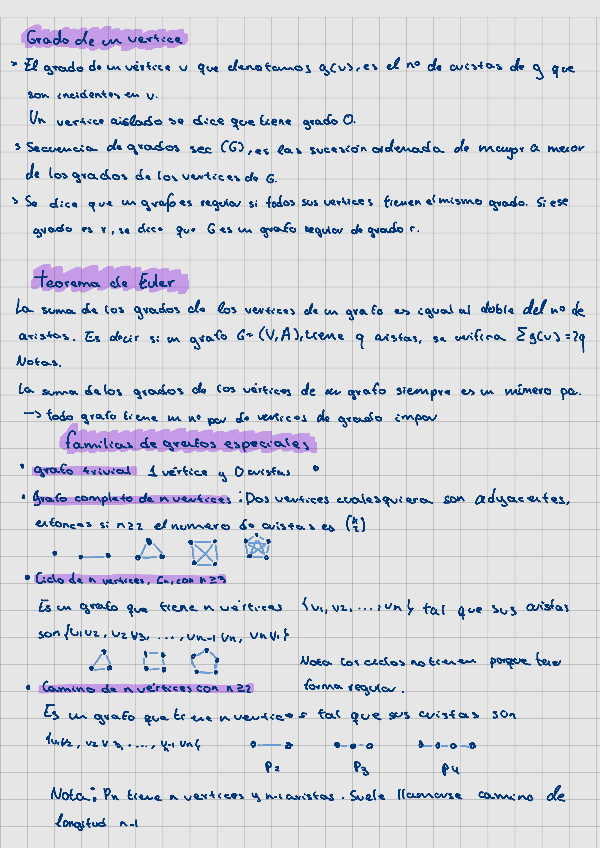 Grado de un vertice
> El grado de un vértice v que denotamos g(v), es el nº de aristas de g que
son incidentes en v.
Un vertice aislado se dice que tiene grado 0.
> Secuencia de grados sec (G), es las sucesión ordenada de mayor a menor
de los grados de los vertices de G.
> Se dice que un grafo es regular si todos sus vertices tienen el mismo grado. Si ese
grado es r, se dice que G es un grafo regular de grado r.
Teorema de Euler
La suma de los grados de los vertices de un grafo es igual al doble del nº de
aristas. Es decir si un grafo G = (V,A), tiene q aristas, se verifica Σg(v) = 2q
Notas.
La suma de los grados de los vértices de un grafo siempre es un número par.
→ todo grafo tiene un nº par de vertices de grado impar
familias de grafos especiales
• grafo trivial 1 vértice y 0 aristas
• Grafo completo de n vertices : Dos vertices cualesquiera son adyacentes,
entonces si n≥2 el numero de aristas es (n 2)
• Ciclo de n vertices, Cn, con n≥3
Es un grafo que tiene n vértices {v1, v2, ..., vn} tal que sus aristas
son {v1v2, v2v3, ..., vn-1 vn, vn v1}
Nota Los ciclos no tienen porque tener
forma regular.
• Camino de n vértices con n≥2
Es un grafo que tiene n vertices tal que sus aristas son
{v1v2, v2v3, ..., vn-1 vn}
P2 P3 P4
Nota: Pn tiene n vertices y n-1 aristas. Suele llamarse camino de
longitud n-1